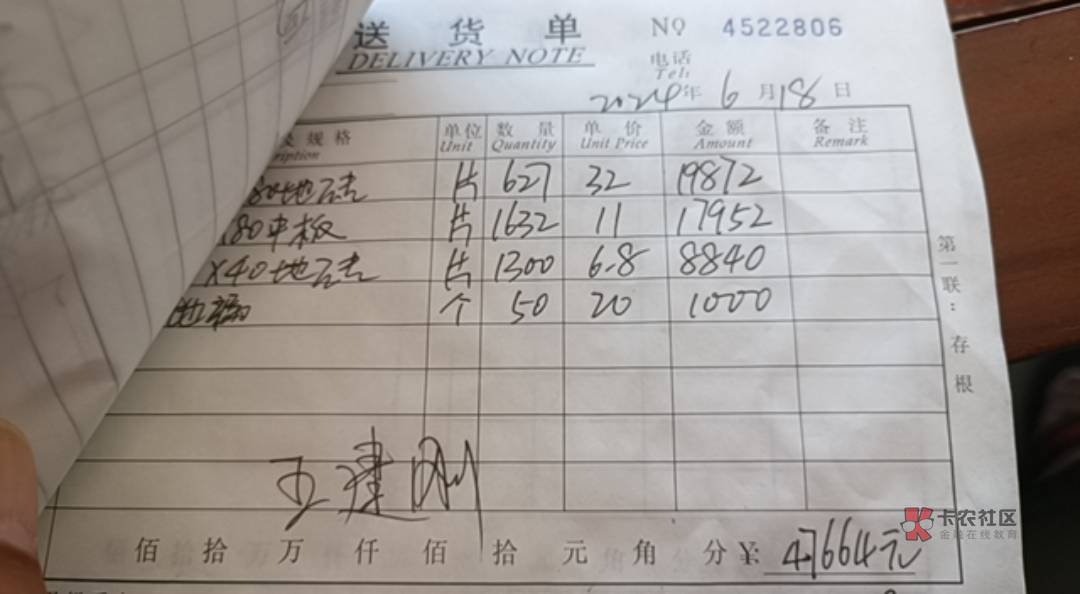 送 货 单 NO 4522806
DELIVERY NOTE
电话
Tel:
2024年 6 月 18 日
规格 单位 数 量 单 价 金 额 备 注
ription Unit Quantity Unit Price Amount Remark
地砖 片 627 32 19872
180平板 片 1632 11 17952
X40地砖 片 1300 6.8 8840
地漏 个 50 20 1000
第一联：存根
王建刚
佰 拾 万 仟 佰 拾 元 角 分 ¥: 47664元
卡农社区
金融在线教育